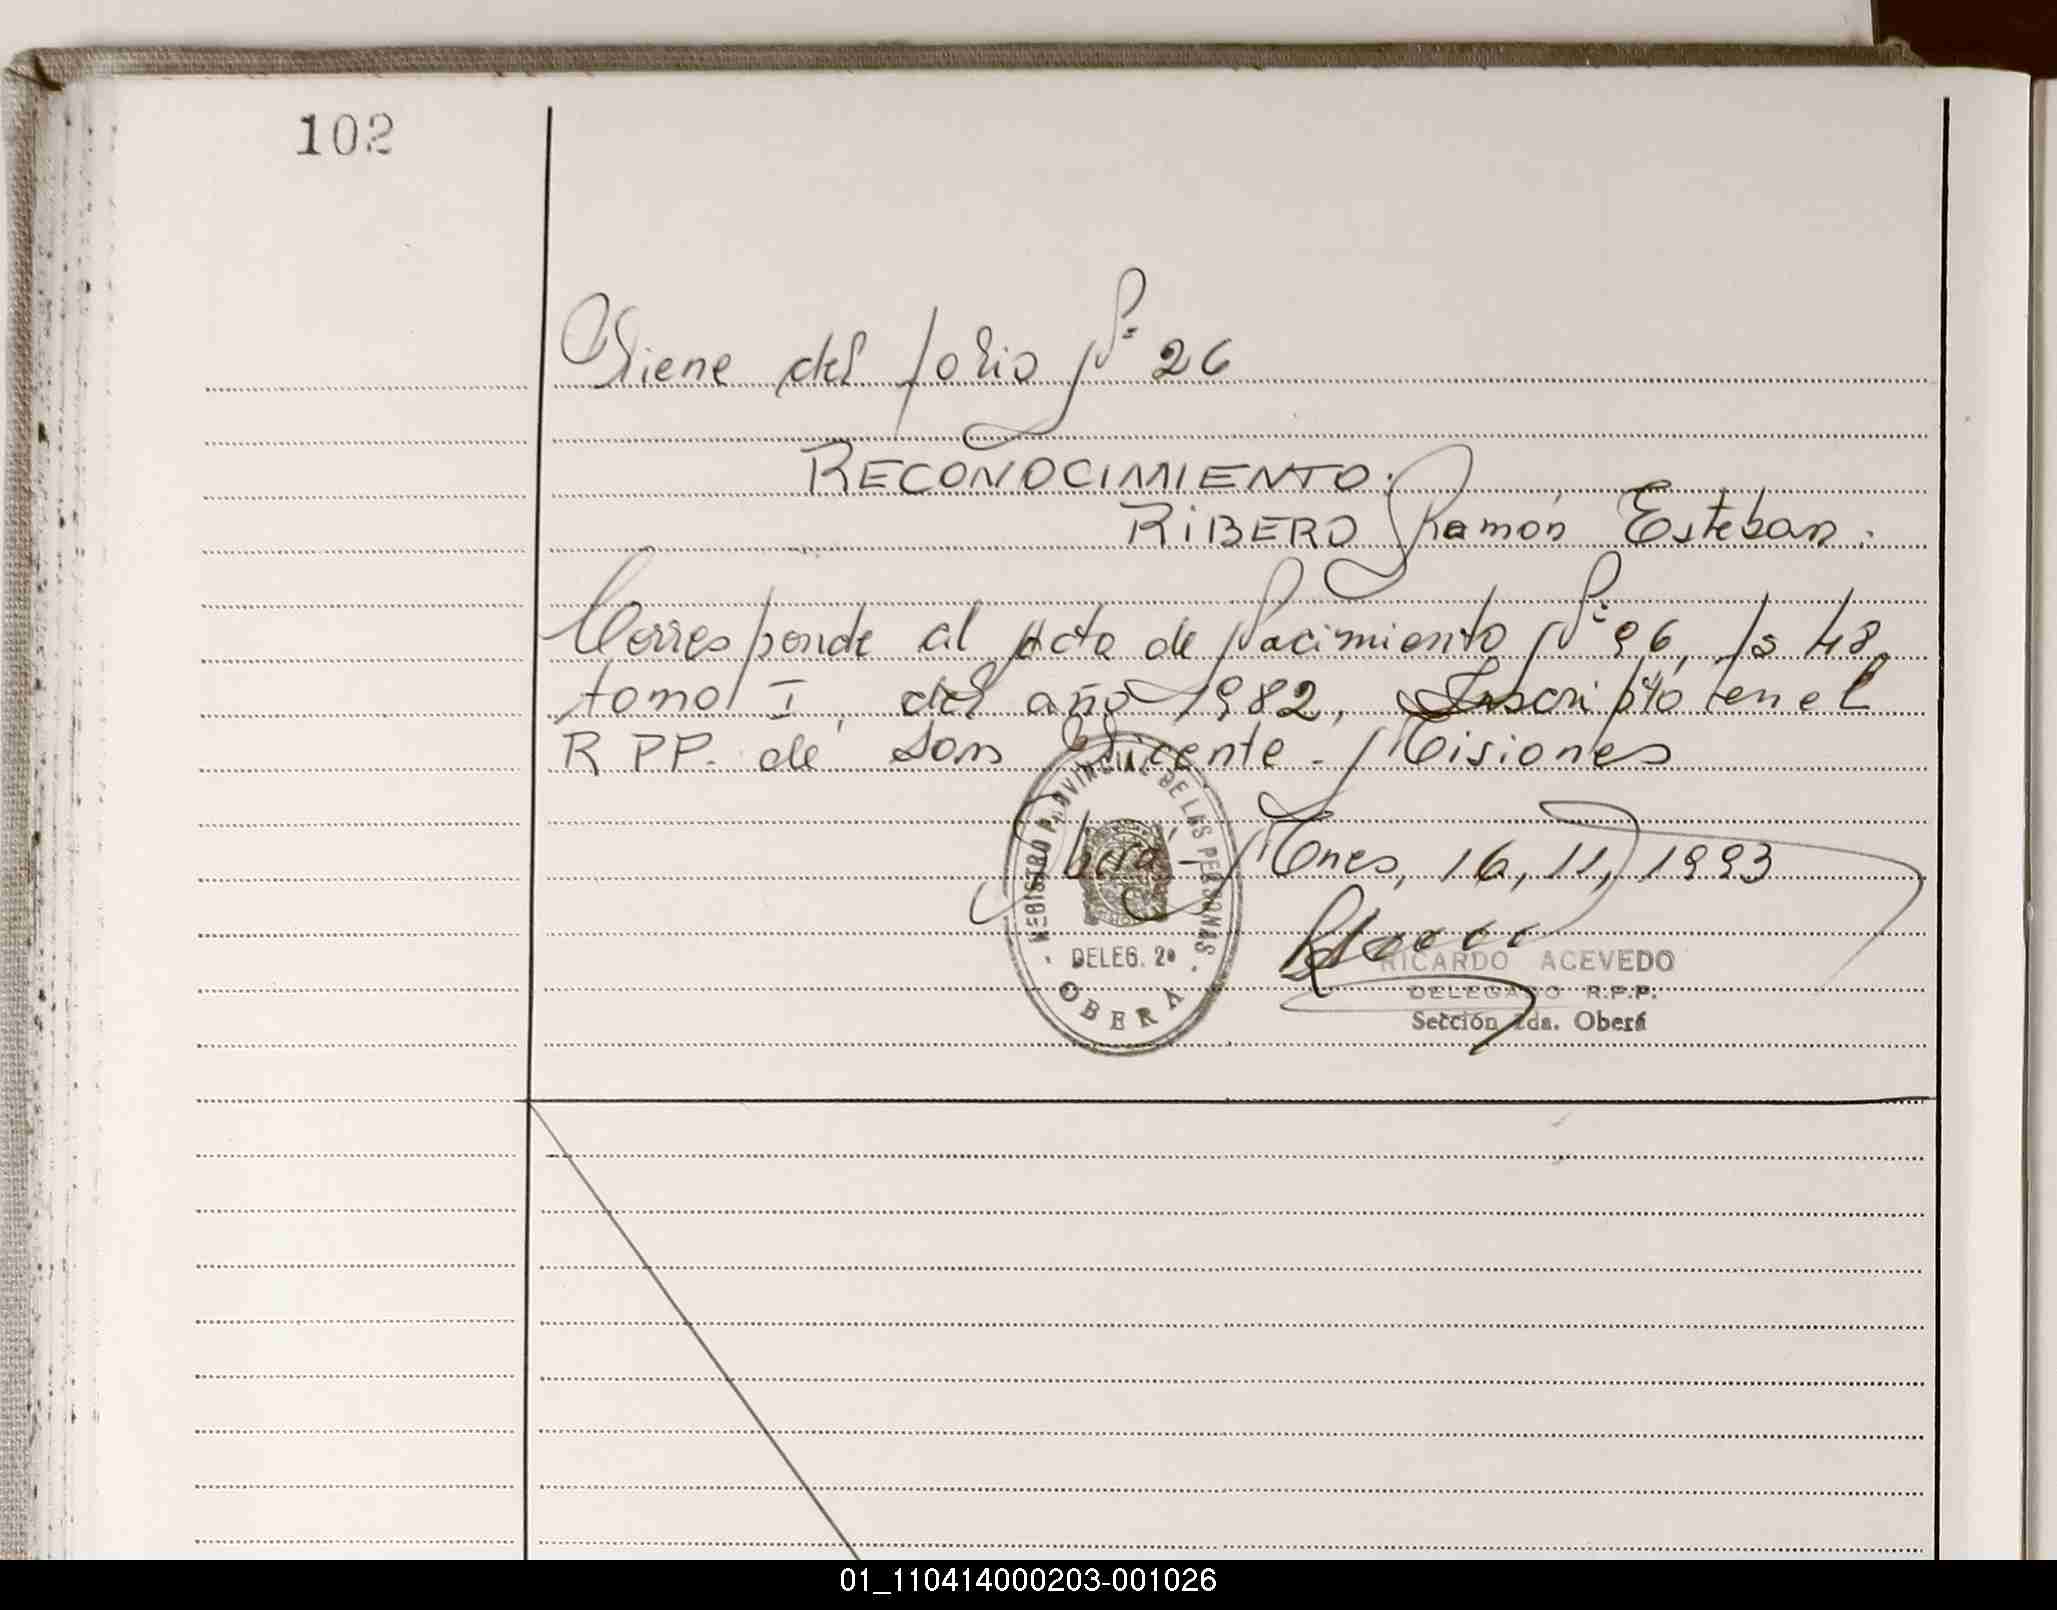 102
Viene del folio Nº 26
RECONOCIMIENTO.
RIBERO Ramón Esteban.
Corresponde al Acta de Nacimiento Nº 96, fs 48,
tomo I, del año 1982, Inscripto en el
R PP. de San Vicente - Misiones
Oberá - Mnes, 16, 11, 1993
REGISTRO PROVINCIAL DE LAS PERSONAS
DELEG. 2ª
OBERA
RICARDO ACEVEDO
DELEGADO R.P.P.
Sección 2da. Oberá
01_110414000203-001026